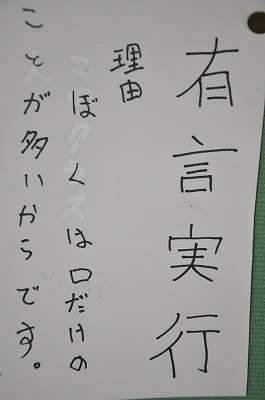 有言実行
理由
ぼくは口だけの
ことが多いからです。